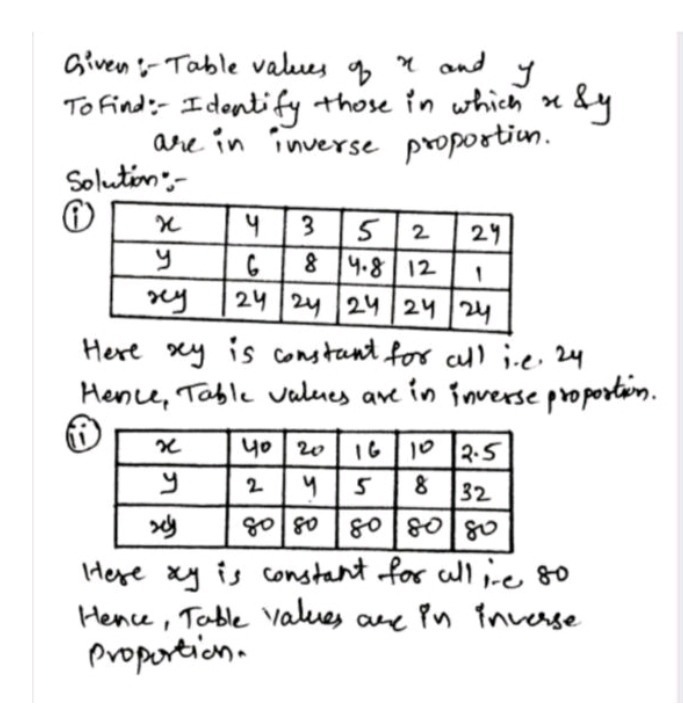 Given :- Table values of x and y
To Find :- Identify those in which x & y
are in inverse proportion.
Solution :-
(i)
x 4 3 5 2 24
y 6 8 4.8 12 1
xy 24 24 24 24 24
Here xy is constant for all i.e. 24
Hence, Table values are in inverse proportion.
(ii)
x 40 20 16 10 2.5
y 2 4 5 8 32
xy 80 80 80 80 80
Here xy is constant for all i.e 80
Hence, Table values are in inverse
proportion.